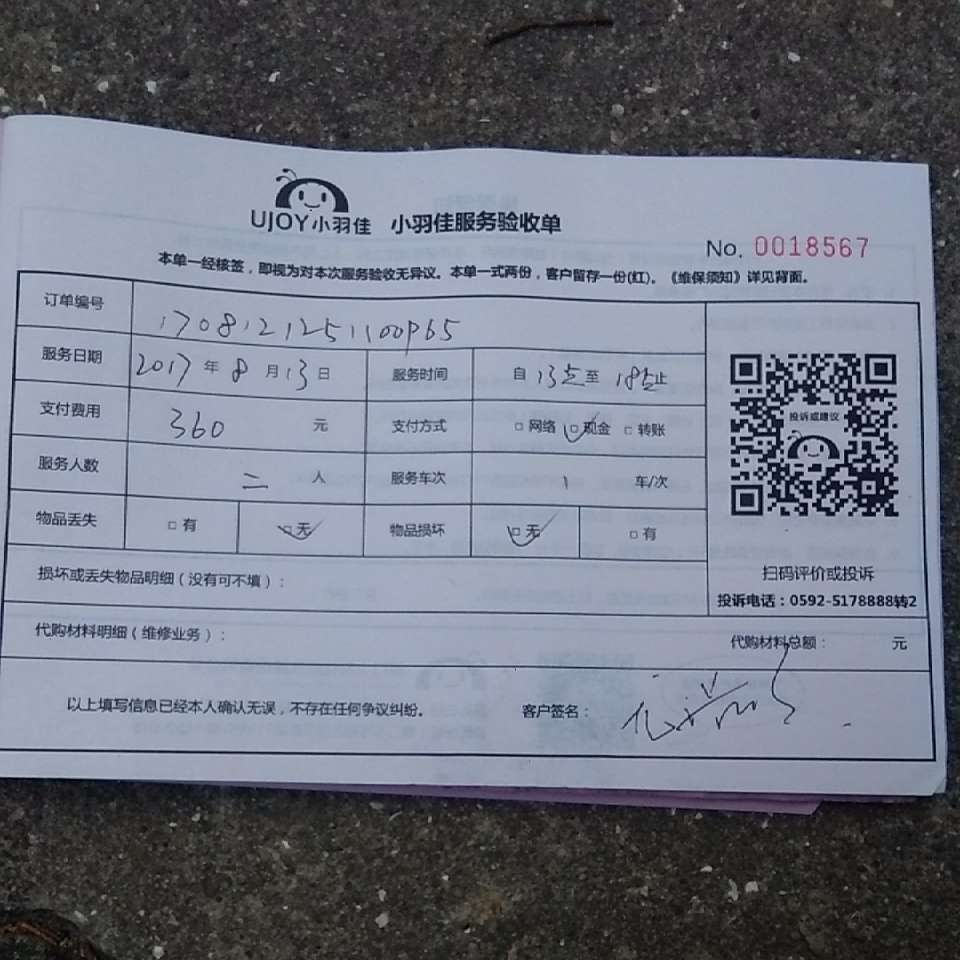 UJOY小羽佳 小羽佳服务验收单
No. 0018567
本单一经核签，即视为对本次服务验收无异议。本单一式两份，客户留存一份(红)。《维保须知》详见背面。
订单编号 1708121251100965
服务日期 2017 年 8 月 13 日 服务时间 自 13点 至 18点 止
支付费用 360 元 支付方式 □网络 □现金 □转账
服务人数 二 人 服务车次 1 车/次
物品丢失 □有 □无 物品损坏 □无 □有
投诉或建议
扫码评价或投诉
损坏或丢失物品明细（没有可不填）：
投诉电话：0592-5178888转2
代购材料明细（维修业务）： 代购材料总额： 元
以上填写信息已经本人确认无误，不存在任何争议纠纷。 客户签名：